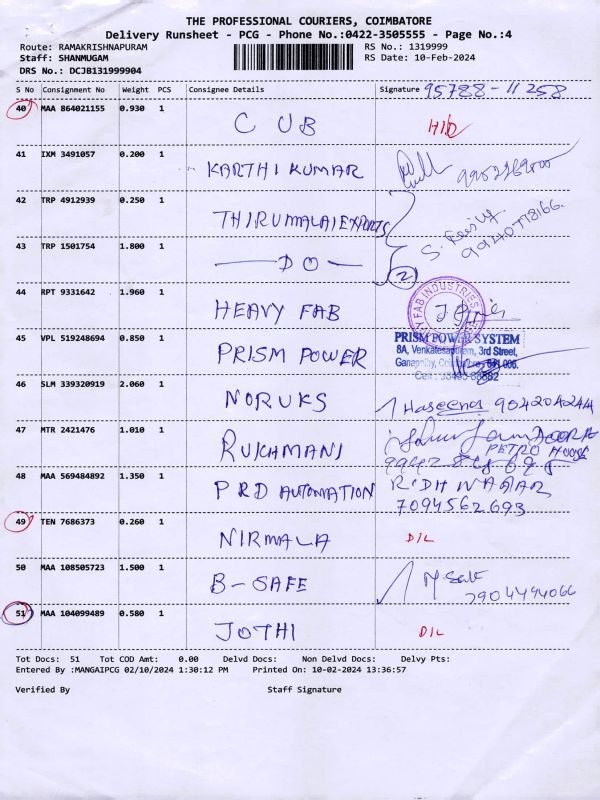 THE PROFESSIONAL COURIERS, COIMBATORE
Delivery Runsheet - PCG - Phone No.:0422-3505555 - Page No.:4
Route: RAMAKRISHNAPURAM RS No.: 1319999
Staff: SHANMUGAM RS Date: 10-Feb-2024
DRS No.: DCJB131999904
S No Consignment No Weight PCS Consignee Details Signature 95788-11258
40 MAA 864021155 0.930 1 CUB
41 IXM 3491057 0.200 1 KARTHIKUMAR
42 TRP 4912939 0.250 1 THIRUMALAI EXPORTS
43 TRP 1501754 1.800 1 —DO— 2
44 RPT 9331642 1.960 1 HEAVY FAB
45 VPL 519248694 0.850 1 PRISM POWER
PRISM POWER SYSTEM
8A, Venkatesapuram, 3rd Street,
46 SLM 339320919 2.060 1 NORUKS Haseena
47 MTR 2421476 1.010 1 RUKHMANI
PETRO HOUSE
48 MAA 569484892 1.350 1 PRD AUTOMATION
7094562693
49 TEN 7686373 0.260 1 NIRMALA D/L
50 MAA 108505723 1.500 1 B-SAFE
7904494066
51 MAA 104099489 0.580 1 JOTHI D/L
Tot Docs: 51 Tot COD Amt: 0.00 Delvd Docs: Non Delvd Docs: Delvy Pts:
Entered By :MANGAIPCG 02/10/2024 1:30:12 PM Printed On: 10-02-2024 13:36:57
Verified By Staff Signature